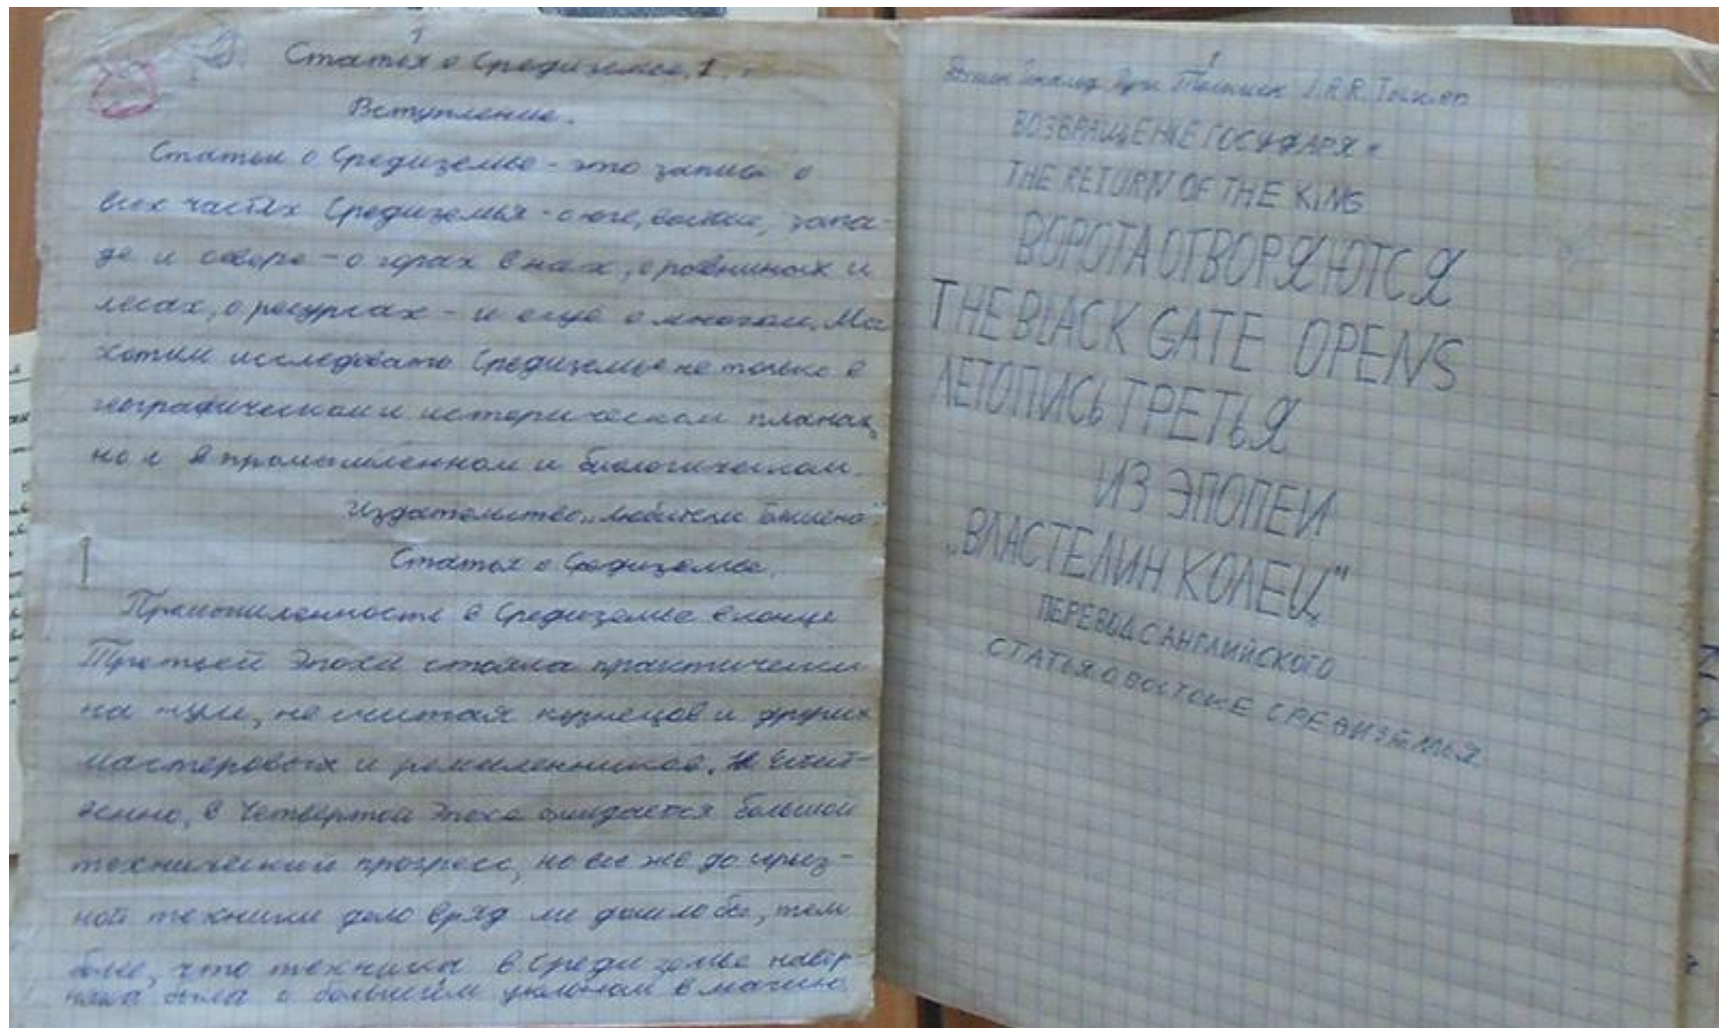 Статья о Средиземье. 1.
Вступление.
Статьи о Средиземье - это записи о
всех частях Средиземья - о юге, востоке, запа-
де и севере - о горах в них, о равнинах и
лесах, о ресурсах - и ещё о многом. Мы
хотим исследовать Средиземье не только в
географическом и историческом планах,
но и в промышленном и биологическом.
Издательство „Любители Толкиена"
Статья о Средиземье.
Промышленность в Средиземье в конце
Третьей Эпохи стояла практически
на нуле, не считая кузнецов и других
мастеровых и ремесленников.
в Четвёртой Эпохе ожидается большой
технический прогресс, но всё же до серьёз-
ной техники дело вряд ли дошло бы, тем
более, что техника в Средиземье навер-
няка была с большим уклоном в магию.
Толкиен J.R.R. Tolkien
ВОЗВРАЩЕНИЕ ГОСУДАРЯ
THE RETURN OF THE KING
ВОРОТА ОТВОРЯЮТСЯ
THE BLACK GATE OPENS
ЛЕТОПИСЬ ТРЕТЬЯ
ИЗ ЭПОПЕИ
„ВЛАСТЕЛИН КОЛЕЦ"
ПЕРЕВОД С АНГЛИЙСКОГО
СТАТЬЯ О ВОСТОКЕ СРЕДИЗЕМЬЯ